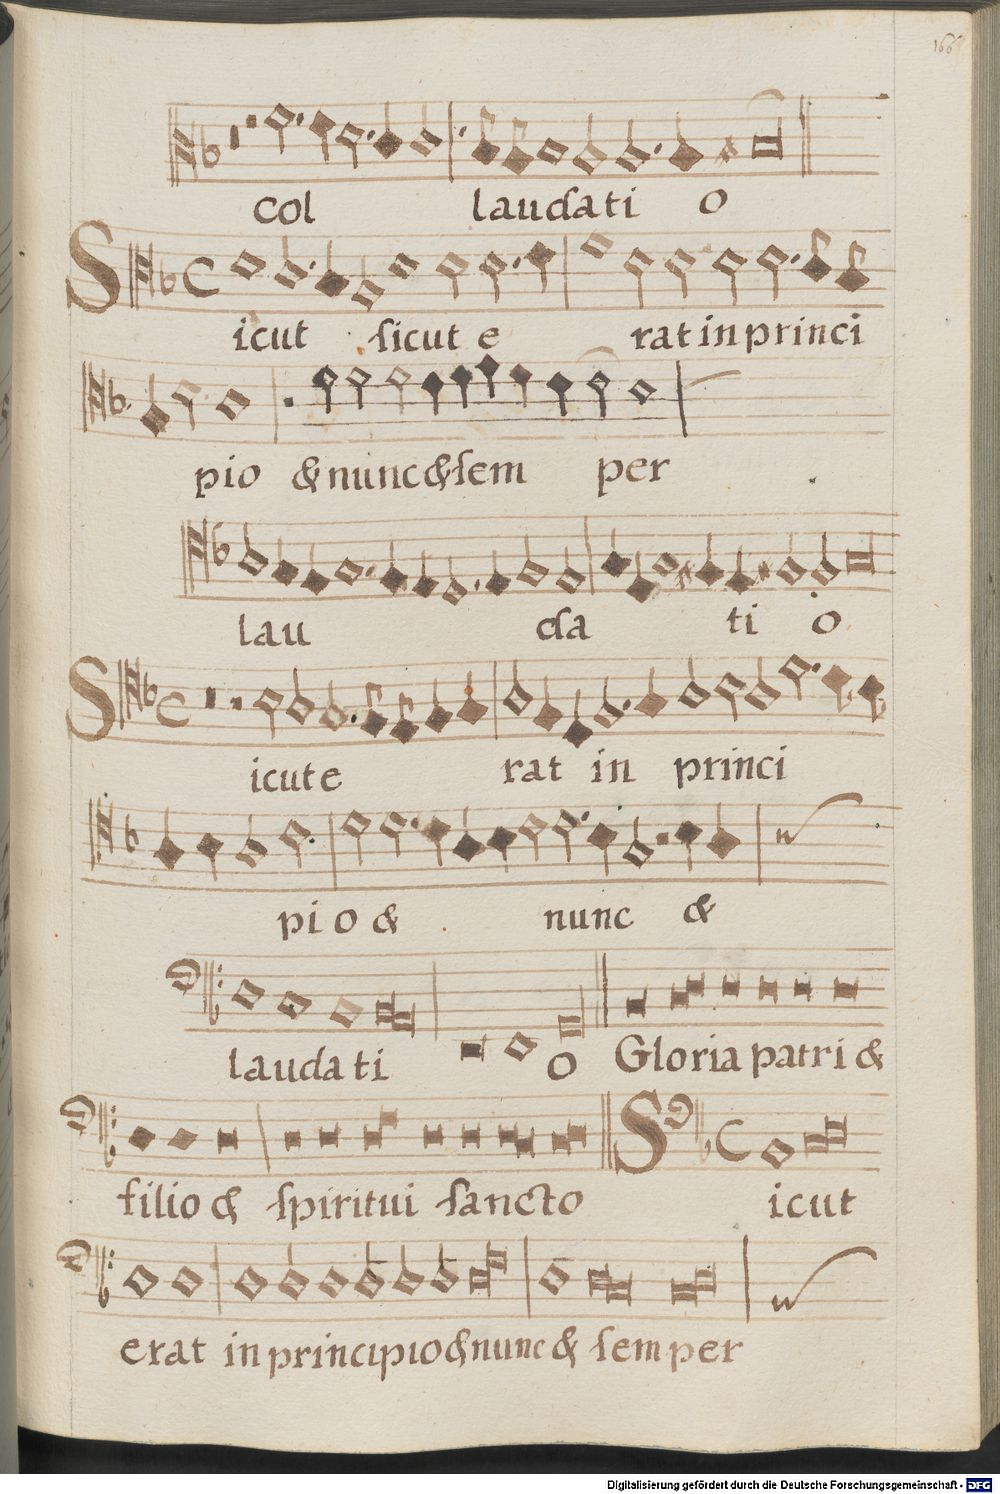 166
col laudati o
Sicut sicut e rat in princi
pio & nunc & sem per
lau da ti o
Sicut e rat in princi
pi o & nunc &
laudati o Gloria patri &
filio & spiritui sancto Sicut
erat in principio & nunc & semper
Digitalisierung gefördert durch die Deutsche Forschungsgemeinschaft - DFG